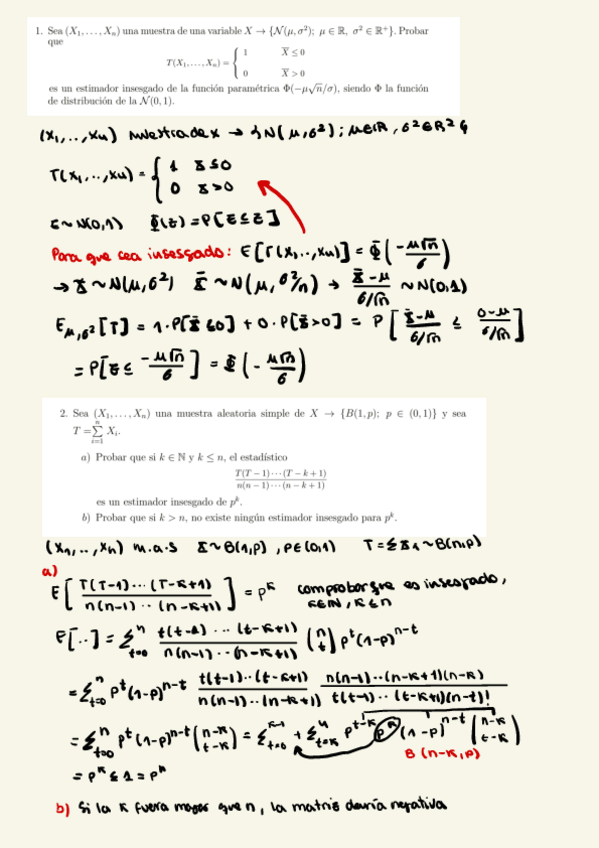 1. Sea (X₁, . . . , Xₙ) una muestra de una variable X → {𝒩(μ, σ²); μ ∈ ℝ, σ² ∈ ℝ⁺}. Probar
que
T(X₁, . . . , Xₙ) = { 1 X̄ ≤ 0
0 X̄ > 0
es un estimador insesgado de la función paramétrica Φ(−μ√n/σ), siendo Φ la función
de distribución de la 𝒩(0, 1).
(X₁,..,Xn) muestra de X → {N(μ,σ²); μ∈R, σ²∈R²}
T(X₁,..,Xn) = { 1 X̄ ≤ 0
0 X̄ > 0
Z~N(0,1) Φ(z) = P[Z ≤ z]
Para que sea insesgado: E[T(X₁,..,Xn)] = Φ(−μ√n/σ)
→ X ~ N(μ,σ²) X̄ ~ N(μ, σ²/n) → (X̄−μ)/(σ/√n) ~ N(0,1)
E_{μ,σ²}[T] = 1·P[X̄ ≤ 0] + 0·P[X̄ > 0] = P[(X̄−μ)/(σ/√n) ≤ (0−μ)/(σ/√n)]
= P[Z ≤ −μ√n/σ] = Φ(−μ√n/σ)
2. Sea (X₁, . . . , Xₙ) una muestra aleatoria simple de X → {B(1, p); p ∈ (0, 1)} y sea
T = ∑ᵢ₌₁ⁿ Xᵢ.
a) Probar que si k ∈ ℕ y k ≤ n, el estadístico
T(T − 1) · · · (T − k + 1)
n(n − 1) · · · (n − k + 1)
es un estimador insesgado de pᵏ.
b) Probar que si k > n, no existe ningún estimador insesgado para pᵏ.
(X₁,..,Xn) m.a.s X~B(1,p), p∈(0,1) T=∑X₁~B(n,p)
a)
E[T(T−1)···(T−k+1) / n(n−1)··(n−k+1)] = pᵏ comprobar que es insesgado,
k∈N, k≤n
E[··] = ∑ₜ₌₀ⁿ t(t−1)···(t−k+1) / n(n−1)··(n−k+1) (n t) pᵗ(1−p)ⁿ⁻ᵗ
= ∑ₜ₌₀ⁿ pᵗ(1−p)ⁿ⁻ᵗ t(t−1)··(t−k+1) / n(n−1)··(n−k+1) n(n−1)··(n−k+1)(n−k) / t(t−1)··(t−k+1)(n−t)!
= ∑ₜ₌₀ⁿ pᵗ(1−p)ⁿ⁻ᵗ (n−k t−k) = ∑ₜ₌₀ᵏ⁻¹ + ∑ₜ₌ₖⁿ pᵗ⁻ᵏ pᵏ (1−p)ⁿ⁻ᵗ (n−k t−k)
B(n−k,p)
= pᵏ ∑ 1 = pᵏ
b) Si la k fuera mayor que n, la matriz daría negativa